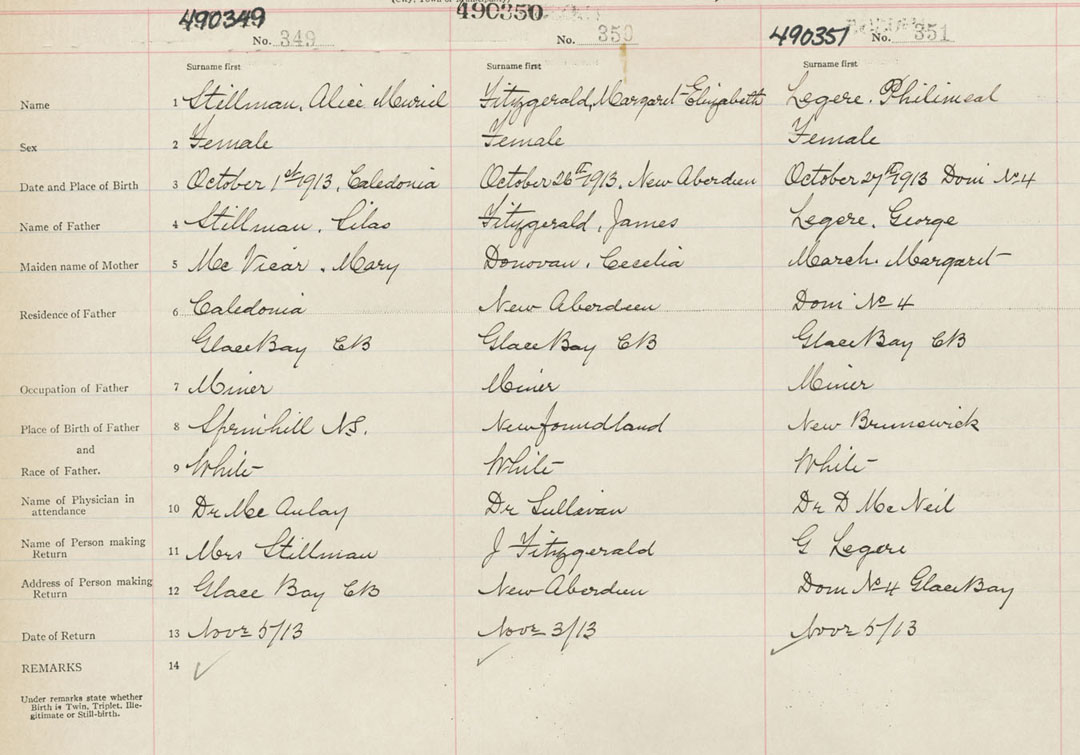 (City, Town or Municipality)
490349 490350 490351
No. 349 No. 350 No. 351
Surname first Surname first Surname first
Name 1 Stillman, Alice Muriel Fitzgerald, Margaret Elizabeth Legere. Philimeal
Sex 2 Female Female Female
Date and Place of Birth 3 October 1st 1913, Caledonia October 26th 1913. New Aberdeen October 27th 1913 Dom No 4
Name of Father 4 Stillman, Silas Fitzgerald, James Legere. George
Maiden name of Mother 5 Mc Vicar. Mary Donovan. Cecelia March. Margaret
Residence of Father 6 Caledonia New Aberdeen Dom No 4
Glace Bay CB Glace Bay CB Glace Bay CB
Occupation of Father 7 Miner Miner Miner
Place of Birth of Father 8 Sprinhill NS. Newfoundland New Brunswick
and
Race of Father. 9 White White White
Name of Physician in attendance 10 Dr Mc Aulay Dr Sullivan Dr D Mc Neil
Name of Person making Return 11 Mrs Stillman J Fitzgerald G Legere
Address of Person making Return 12 Glace Bay CB New Aberdeen Dom No 4 Glace Bay
Date of Return 13 Novr 5/13 Novr 3/13 Novr 5/13
REMARKS 14
Under remarks state whether
Birth is Twin, Triplet, Ille-
gitimate or Still-birth.